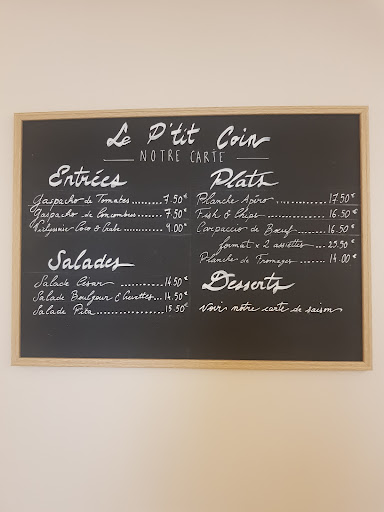 Le P'tit Coin
NOTRE CARTE
Entrées
Gaspacho de Tomates ......... 7.50€
Gaspacho de Concombres ...... 7.50€
Coco & Crabe ..... 9.00€
Salades
Salade César ............. 14.50€
Salade Boulgour & Crevettes ... 14.50€
Salade Pita ............... 15.50€
Plats
Planche Apéro ............... 17.50€
Fish & Chips ............... 16.50€
Carpaccio de Bœuf ......... 16.50€
format x 2 assiettes ..... 23.50€
Planche de Fromages ....... 14.00€
Desserts
Voir notre carte de saison